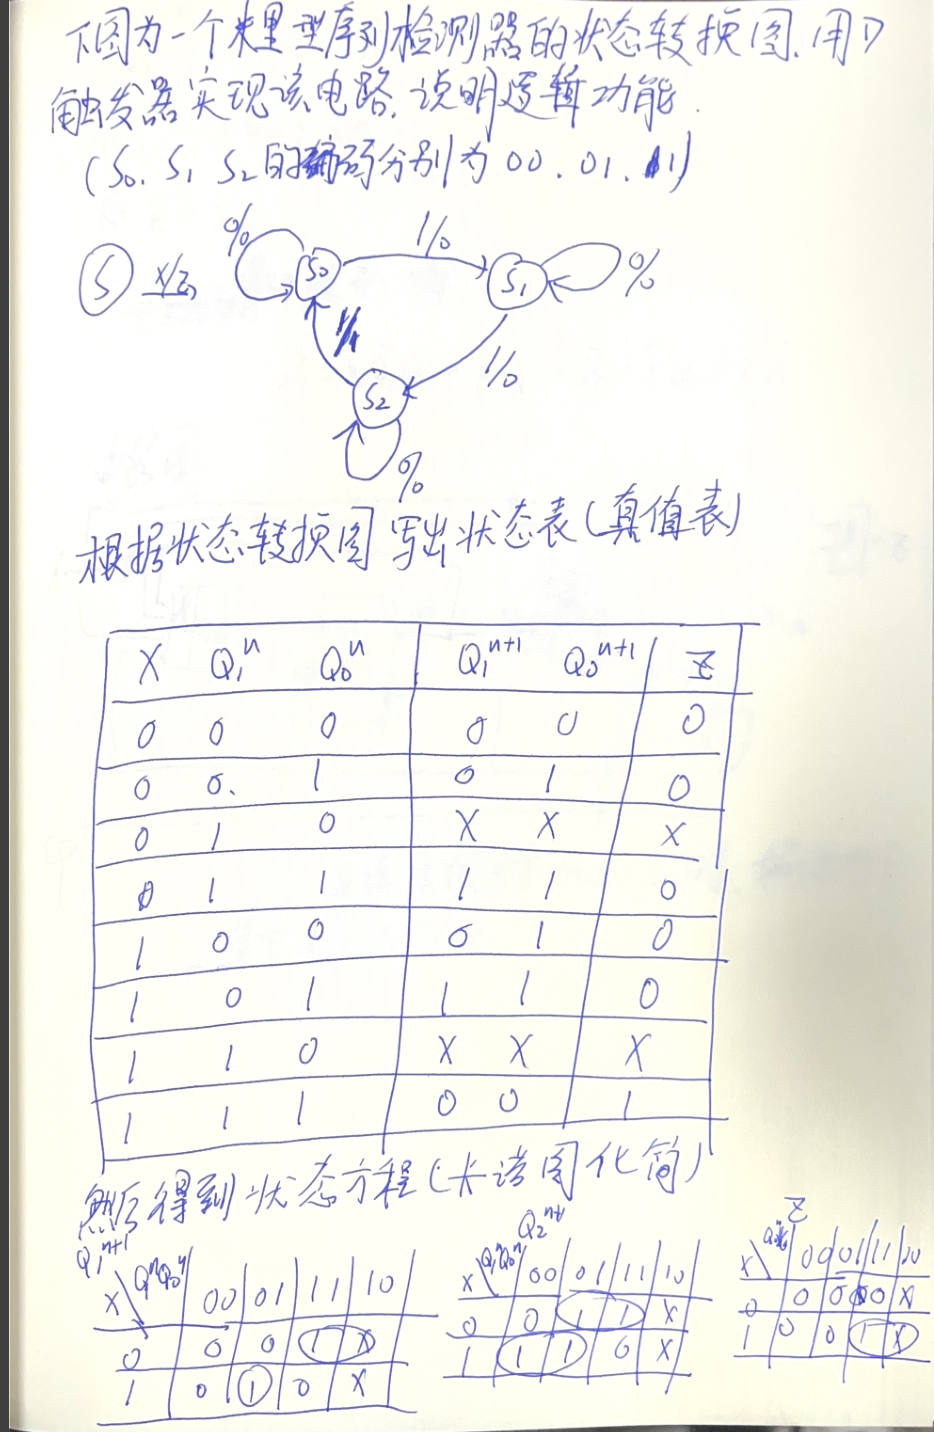 下图为一个米里型序列检测器的状态转换图.用D
触发器实现该电路.说明逻辑功能.
(S₀. S₁ S₂的编码分别为00.01.11)
S X/Z
S₀ S₁ S₂
0/0 1/0 0/0
1/1 1/0
0/0
根据状态转换图写出状态表(真值表)
X Q₁ⁿ Q₀ⁿ Q₁ⁿ⁺¹ Q₀ⁿ⁺¹ Z
0 0 0 0 0 0
0 0. 1 0 1 0
0 1 0 X X X
0 1 1 1 1 0
1 0 0 0 1 0
1 0 1 1 1 0
1 1 0 X X X
1 1 1 0 0 1
然后得到状态方程(卡诺图化简)
Q₁ⁿ⁺¹
X Q₁ⁿQ₀ⁿ 00 01 11 10
0 0 0 1 X
1 0 1 0 X
Q₂ⁿ⁺¹
X Q₁ⁿQ₀ⁿ 00 01 11 10
0 0 1 1 X
1 1 1 0 X
Z
X 00 01 11 10
0 0 0 0 X
1 0 0 1 X